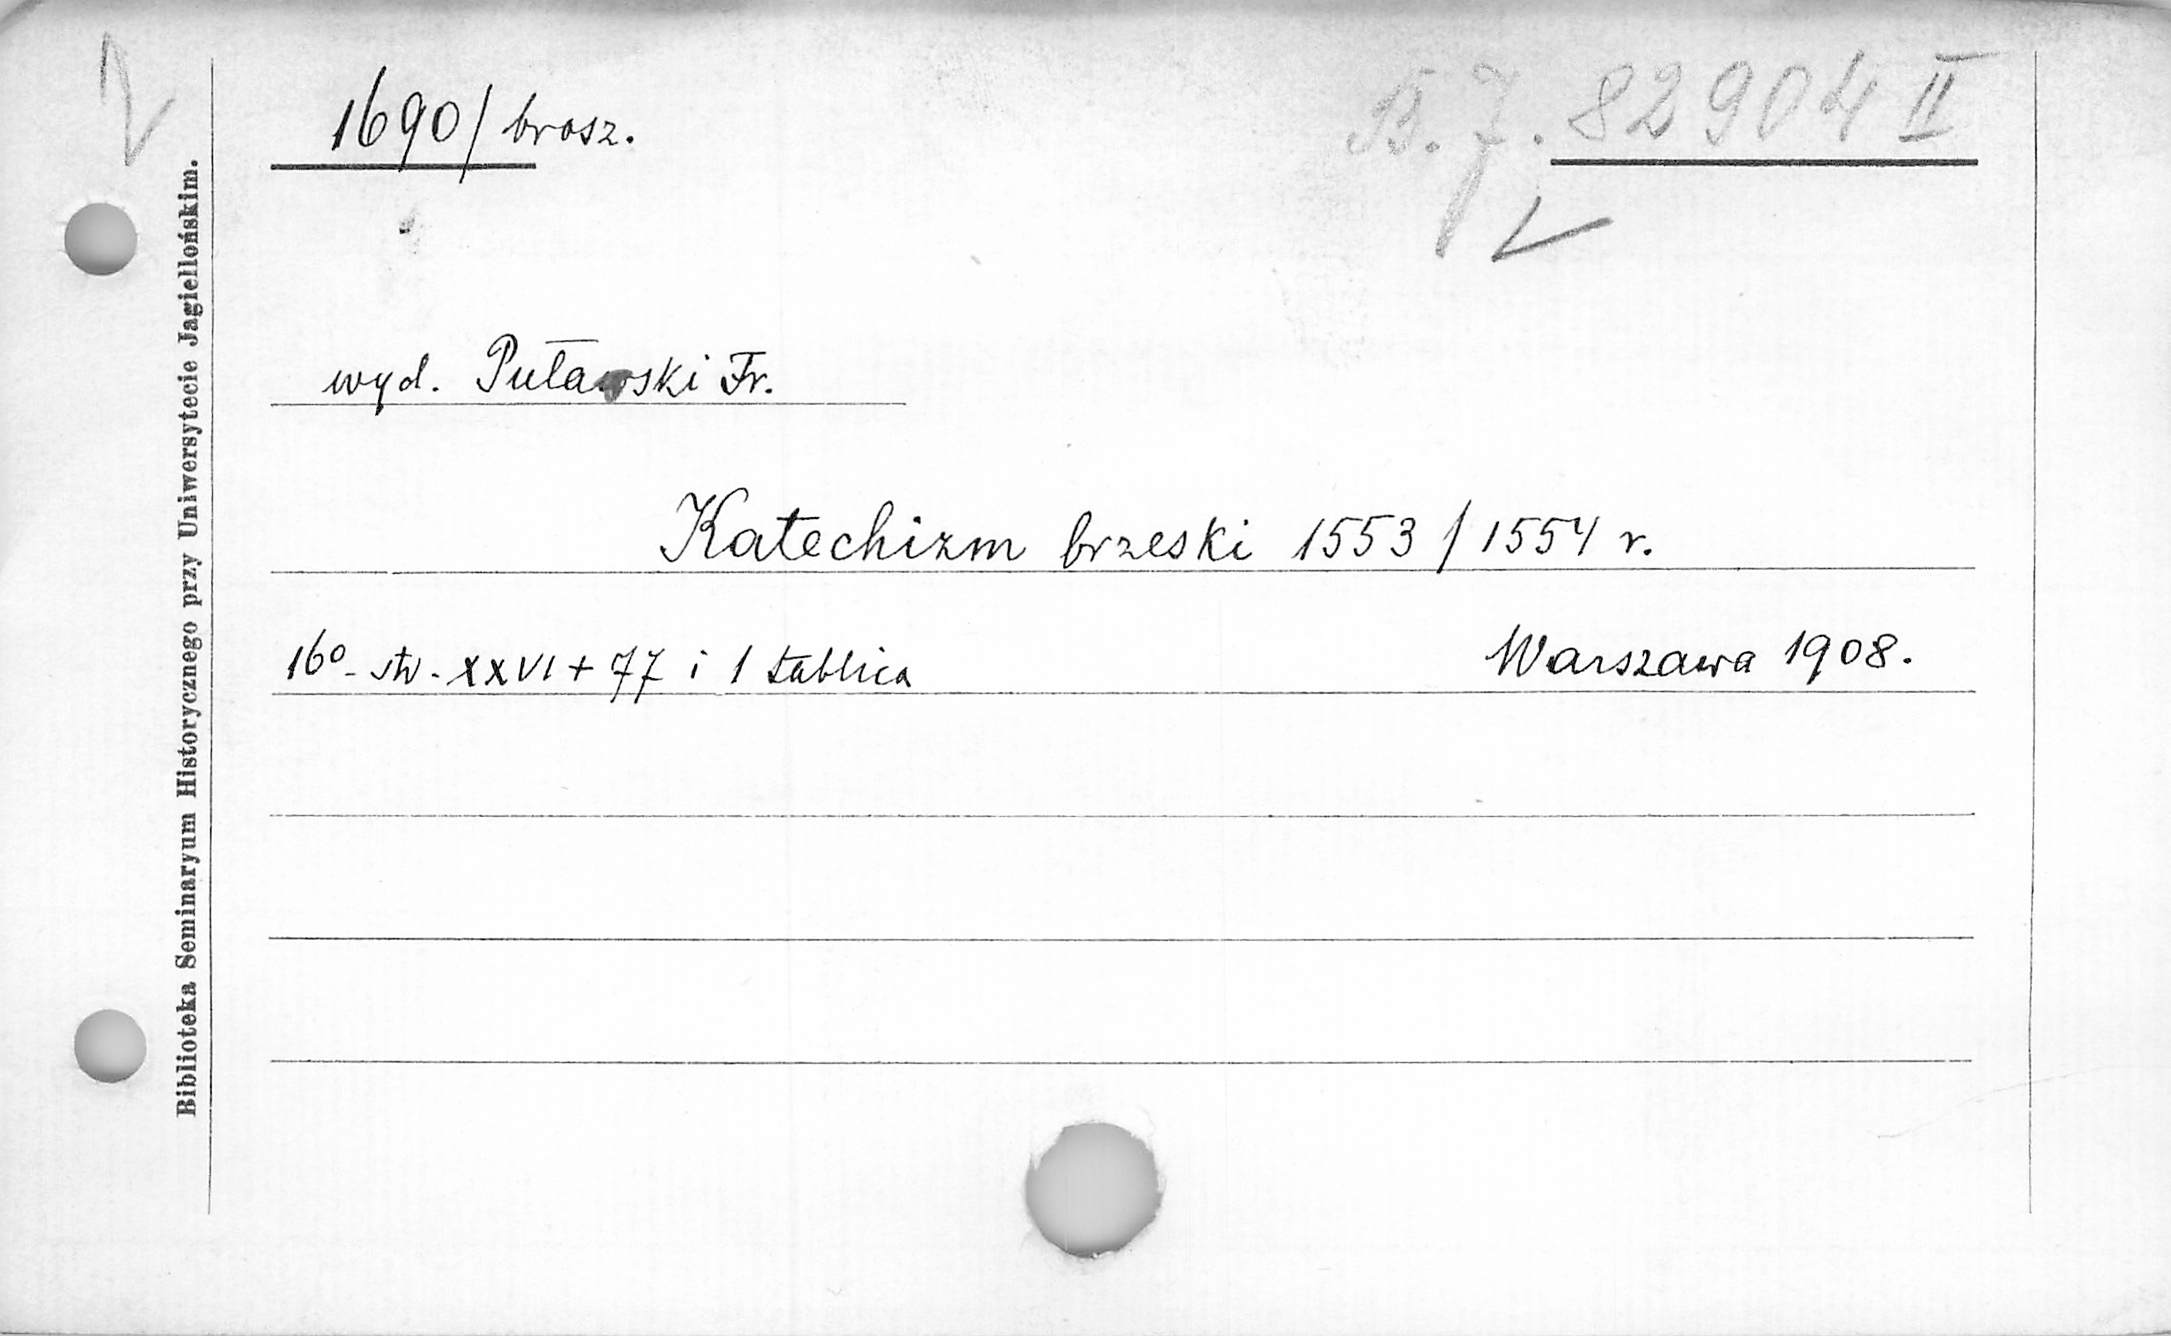 1690/ brosz.
B. J. 82904 II
wyd. Puławski Fr.
Katechizm brzeski 1553 / 1554 r.
16⁰ - str. XXVI + 77 i 1 tablica
Warszawa 1908.
Biblioteka Seminaryum Historycznego przy Uniwersytecie Jagiellońskim.